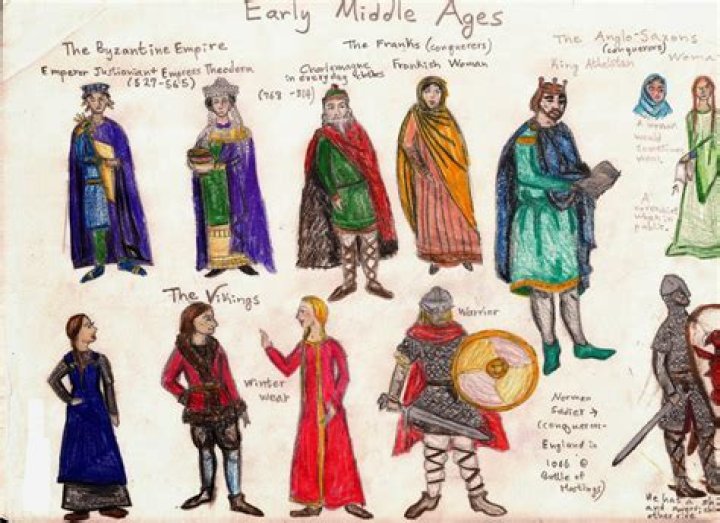 Early Middle Ages
The Byzantine Empire
Emperor Justinian & Empress Theodora
(527-565)
The Franks (conquerers)
Charlemagne
in everyday clothes
(768 - 814)
Frankish Woman
The Anglo-Saxons
(conquerors)
King Athelstan
Woma
A woman
would
sometimes
wear
A
when in
public.
The Vikings
Winter
wear
Warrior
Norman
Soldier →
(conquerors-
England in
1066 @
Battle of
Hastings)
He has a sh
and sword
other side